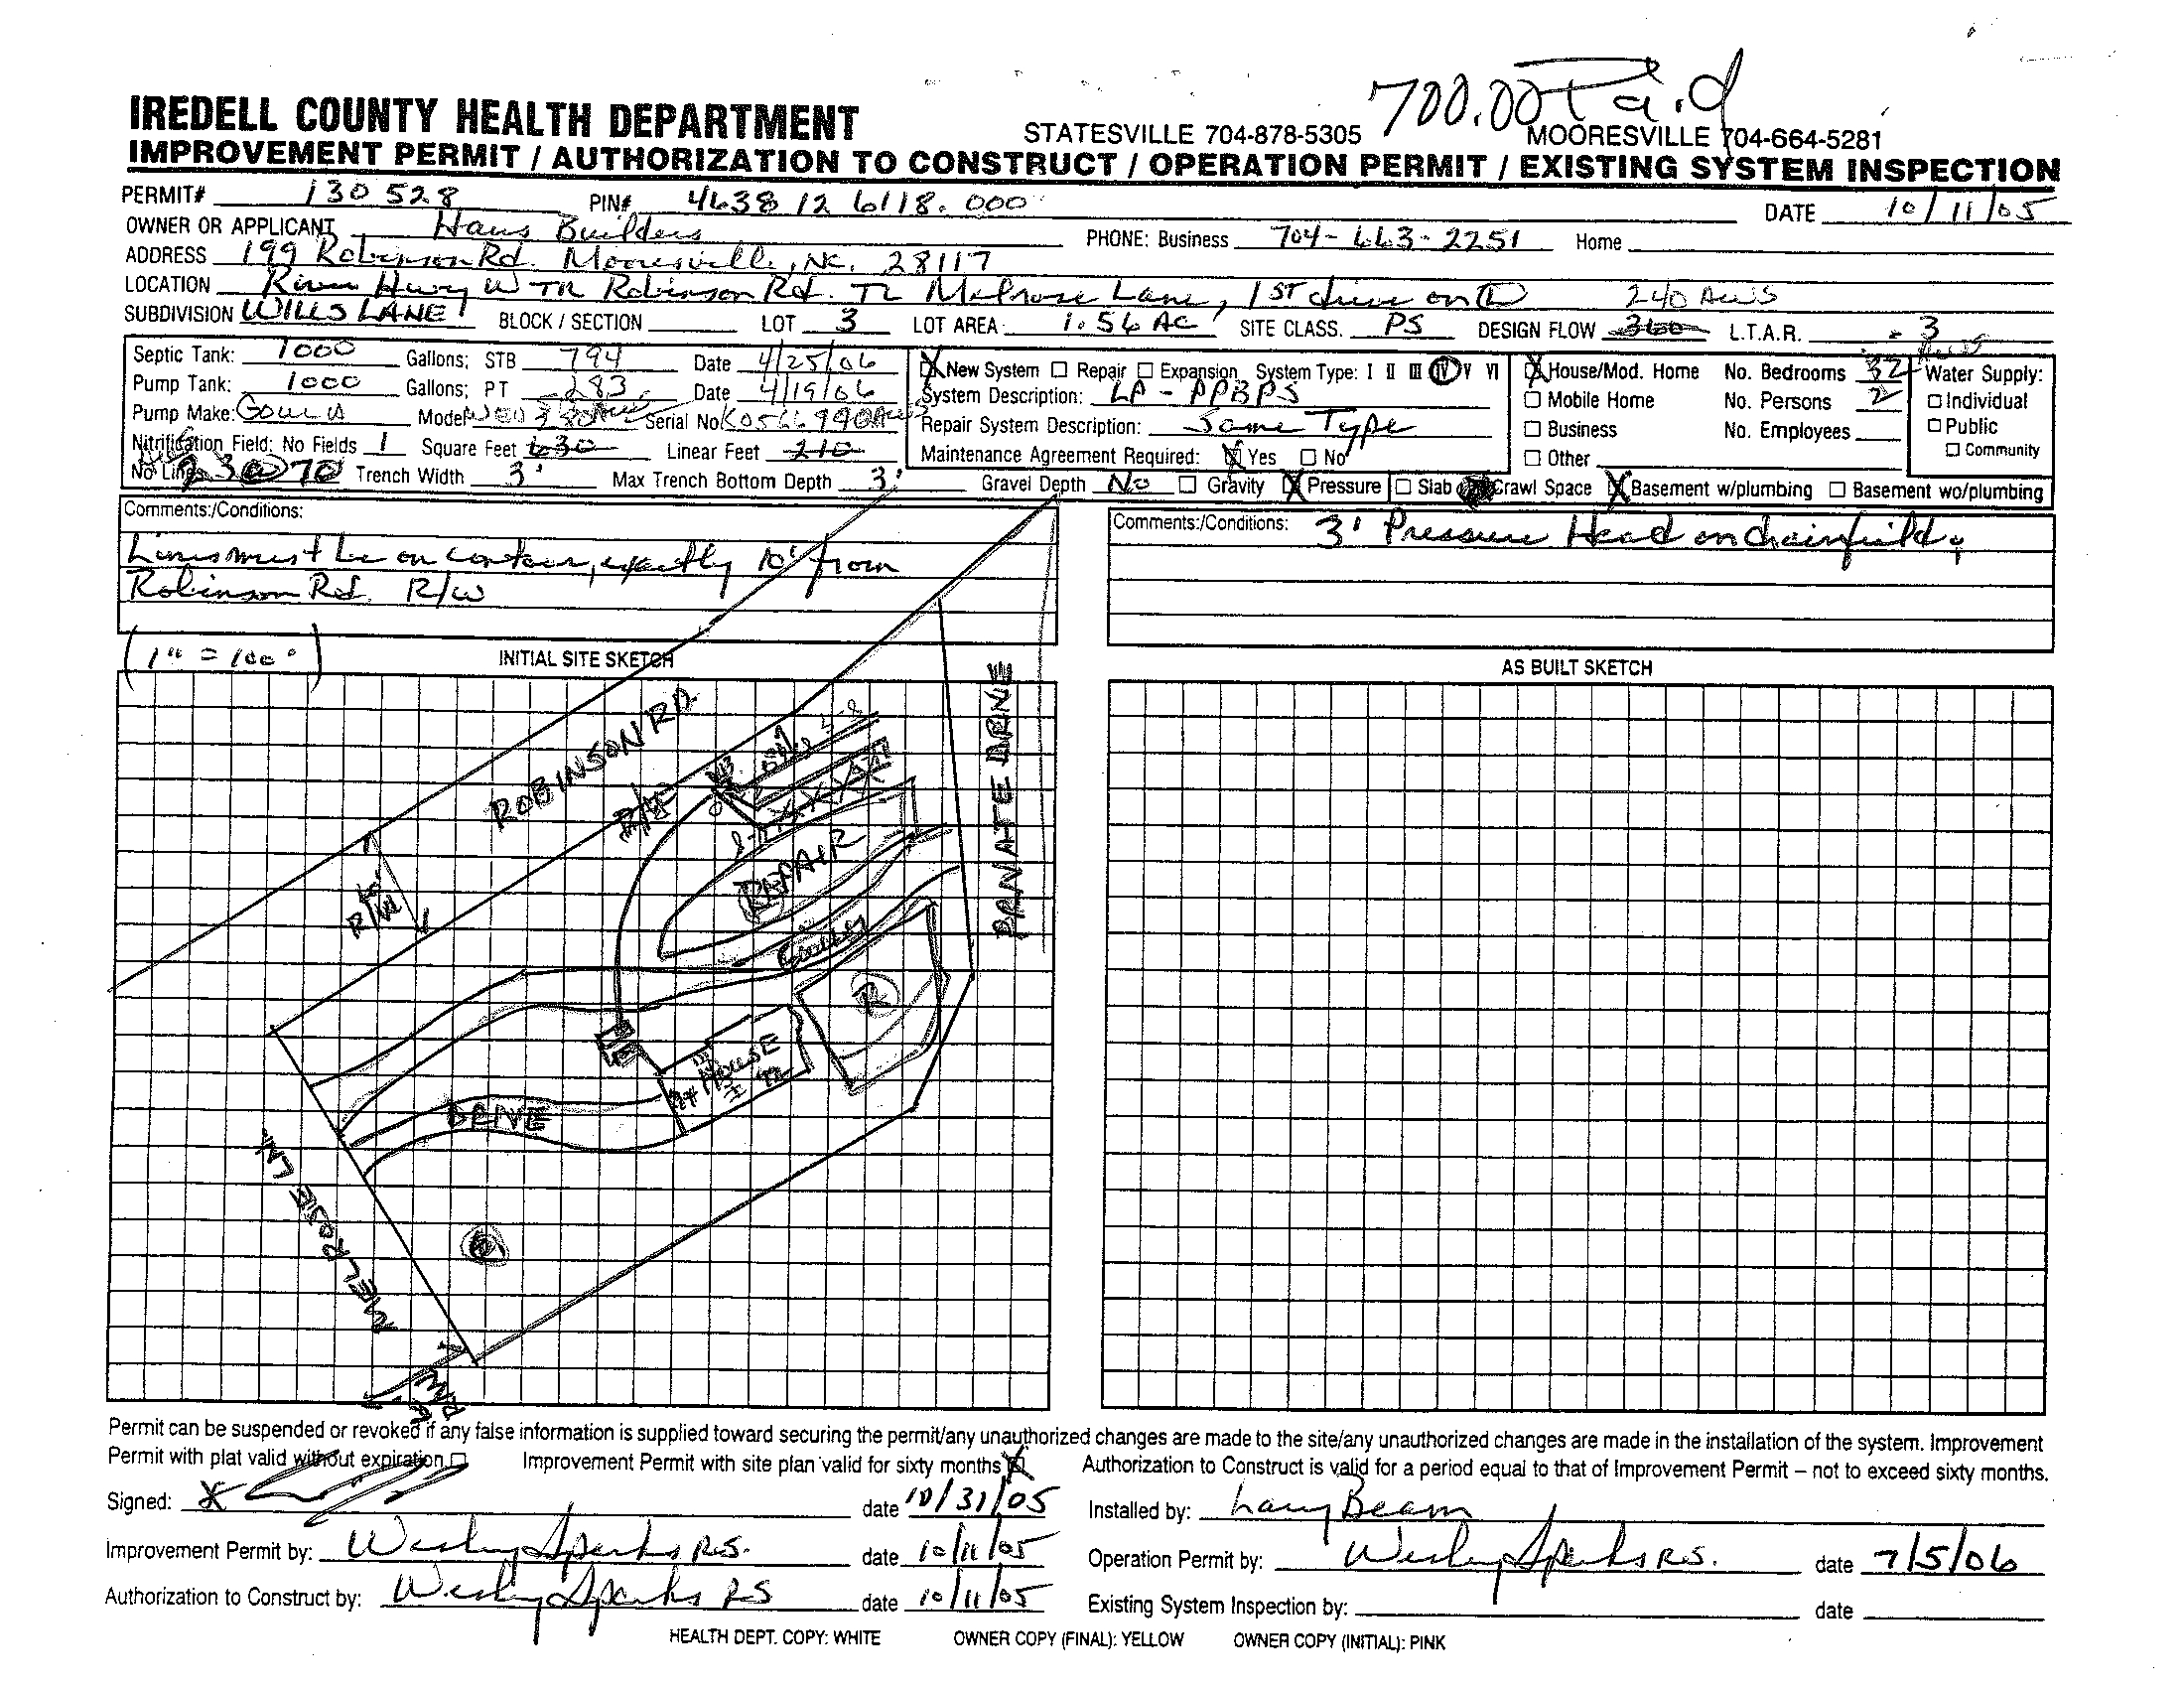 700.00 Paid
IREDELL COUNTY HEALTH DEPARTMENT
STATESVILLE 704-878-5305 MOORESVILLE 704-664-5281
IMPROVEMENT PERMIT / AUTHORIZATION TO CONSTRUCT / OPERATION PERMIT / EXISTING SYSTEM INSPECTION
PERMIT# 130528 PIN# 4638 12 6118.000 DATE 10/11/05
OWNER OR APPLICANT Haus Builders PHONE: Business 704-663-2251 Home
ADDRESS 199 Robinson Rd. Mooresville, NC. 28117
LOCATION River Hwy W TR Robinson Rd. TL Melrose Lane, 1ST drive on L 240 AWS
SUBDIVISION WILLS LANE BLOCK / SECTION LOT 3 LOT AREA 1.56 AC SITE CLASS. PS DESIGN FLOW 360 L.T.A.R. .3
Septic Tank: 1000 Gallons; STB 794 Date 4/25/06
Pump Tank: 1000 Gallons; PT 283 Date 4/19/06
Pump Make: Goulds Model Serial No.
Nitrification Field: No Fields 1 Square Feet 630 Linear Feet 210
No Lines 3 @ 70 Trench Width 3' Max Trench Bottom Depth 3' Gravel Depth No Gravity Pressure Slab Crawl Space Basement w/plumbing Basement wo/plumbing
New System Repair Expansion System Type: I II III IV V VI
System Description: LP - PPBPS
Repair System Description: Same Type
Maintenance Agreement Required: Yes No
House/Mod. Home No. Bedrooms 32
Mobile Home No. Persons 2
Business No. Employees
Other
Water Supply:
Individual
Public
Community
Comments:/Conditions:
Lines must be on contour, exactly 10' from
Robinson Rd. R/W
Comments:/Conditions: 3' Pressure Head on drainfield
(1" = 100')
INITIAL SITE SKETCH
AS BUILT SKETCH
ROBINSON RD.
R/W
R/W
REPAIR
Gulley
PRIVATE DRIVE
R
HOUSE
DRIVE
MELROSE LN
R/W
Permit can be suspended or revoked if any false information is supplied toward securing the permit/any unauthorized changes are made to the site/any unauthorized changes are made in the installation of the system. Improvement
Permit with plat valid without expiration Improvement Permit with site plan valid for sixty months Authorization to Construct is valid for a period equal to that of Improvement Permit – not to exceed sixty months.
Signed: X date 10/31/05 Installed by: Larry Beam
Improvement Permit by: Wesley Sparks R.S. date 10/11/05 Operation Permit by: Wesley Sparks R.S. date 7/5/06
Authorization to Construct by: Wesley Sparks RS date 10/11/05 Existing System Inspection by: date
HEALTH DEPT. COPY: WHITE OWNER COPY (FINAL): YELLOW OWNER COPY (INITIAL): PINK